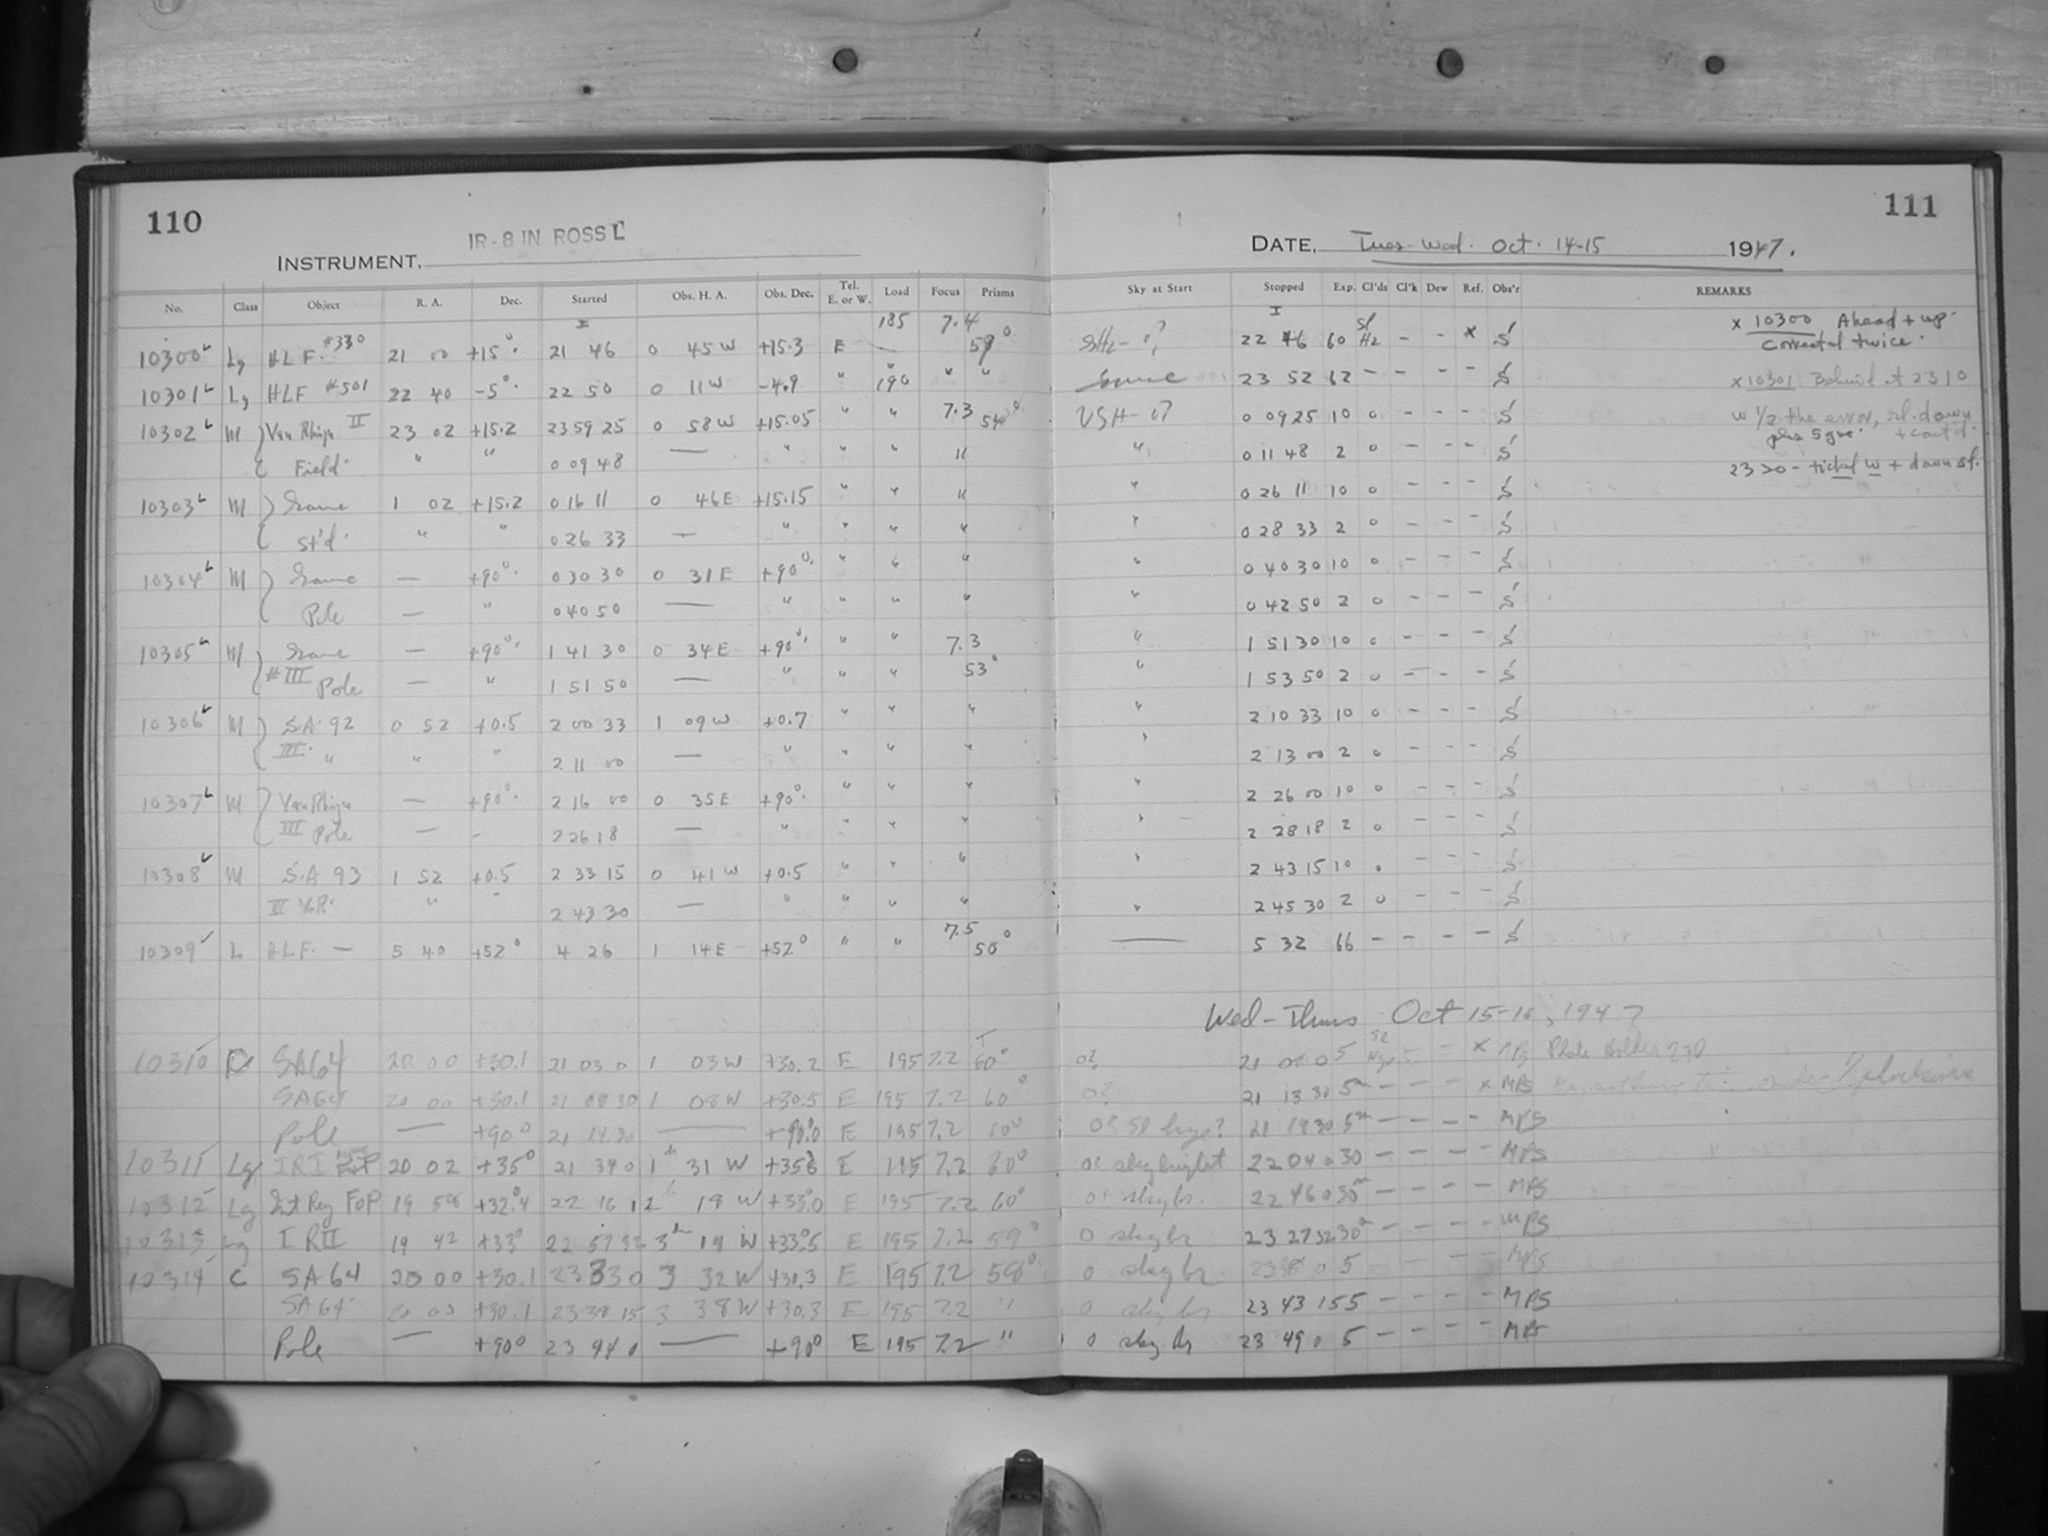 110
111
IR-8 IN ROSS L
INSTRUMENT.
DATE. Tues-Wed. Oct. 14-15 1947.
No. Class Object R. A. Dec. Started Obs. H. A. Obs. Dec. Tel. E. or W. Load Focus Prisms Sky at Start Stopped Exp. Cl'ds Cl'k Dew Ref. Obs'r REMARKS
10300 Lg HLF. #330 21 00 +15°. 21 46 0 45 W +15.3 E 185 7.4 59° 22 46 60 Sl Hz - - x S x 10300 Ahead + up.
Corrected twice.
10301 Lg HLF #501 22 40 -5°. 22 50 0 11 W -4.9 " 190 " " Same 23 52 62 - - - - S x 10301 Behind at 2310
10302 M Van Rhijn II 23 02 +15.2 23 59 25 0 58 W +15.05 " " 7.3 54° VSH- 0? 0 09 25 10 0 - - - S w 1/2 the error, sl. down
Field. " " 0 09 48 — " " " " " 0 11 48 2 0 - - - S
23 20 - w + down sl.
10303 M Same 1 02 +15.2 0 16 11 0 46 E +15.15 " " " " 0 26 11 10 0 - - - S
St'd. " " 0 26 33 — " " " " " 0 28 33 2 0 - - - S
10304 M Same — +90°. 0 30 30 0 31 E +90°. " " " " 0 40 30 10 0 - - - S
Pole — " 0 40 50 — " " " " " 0 42 50 2 0 - - - S
10305 M Same — +90°. 1 41 30 0 34 E +90°. " " 7.3 " 1 51 30 10 0 - - - S
# III Pole — " 1 51 50 — " " " 53° " 1 53 50 2 0 - - - S
10306 M S.A. 92 0 52 +0.5 2 00 33 1 09 W +0.7 " " " " 2 10 33 10 0 - - - S
III. " " " 2 11 00 — " " " " " 2 13 00 2 0 - - - S
10307 M Van Rhijn — +90°. 2 16 00 0 35 E +90°. " " " " 2 26 00 10 0 - - - S
III Pole — - 2 26 18 — " " " " " 2 28 18 2 0 - - - S
10308 M S.A 93 1 52 +0.5 2 33 15 0 41 W +0.5 " " " " 2 43 15 10 0 - - - S
" " 2 43 30 — " " " " " 2 45 30 2 0 - - - S
10309 L HLF. — 5 40 +52° 4 26 1 14 E +52° " " 7.5 50° — 5 32 66 - - - - S
Wed - Thurs Oct 15-16, 1947
10310 C SA64 20 00 +30.1 21 03 0 1 03 W +30.2 E 195 7.2 60° 0? 21 5 - x Plate Holder
SA64 20 00 +30.1 21 08 30 1 08 W +30.5 E 195 7.2 60° 0? 21 13 30 5m - - - x MPS
Pole — +90° 21 14 30 — +90.0 E 195 7.2 60° 0? Sl haze? 21 19 30 5m - - - - MPS
Lg IRI 20 02 +35° 21 34 0 1h 31 W E 7.2 60° 0? sky bright 22 04 0 30 - - - - MPS
10312 Lg Int Reg FoP 19 58 +32.4 22 16 2h 19 W +33.0 E 195 7.2 60° 0? sky br. 22 46 0 30m - - - - MPS
10313 Lg IRII 19 42 +33° 22 57 32 3h 17 W +33.5 E 195 7.2 59° 0 sky br 23 27 32 30m - - - - MPS
10314 C SA64 20 00 +30.1 23 33 0 3 32 W +30.3 E 195 7.2 58° 0 sky br 23 38 0 5 - - - - MPS
SA64 20 00 +30.1 23 38 15 3 38 W +30.3 E 195 7.2 " 0 sky br 23 43 15 5 - - - - MPS
Pole — +90° 23 44 0 — +90° E 195 7.2 " 0 sky br 23 49 0 5 - - - - MPS